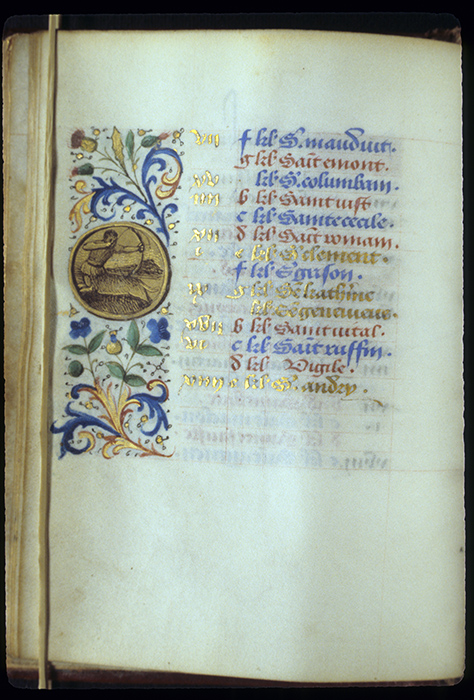 vii f kl S. mauduit.
g kl Sait emont.
xv kl S. columbain.
iiii b kl Saint
c kl Sainte cecile.
xii d kl Sait romain.
i e kl S clement.
f kl S grison.
ix g kl Se kath'ine
kl Se genevieve.
xvii b kl Saint vital.
vi c kl Sait ruffin.
d kl Vigile.
xiiii e kl S. andry.